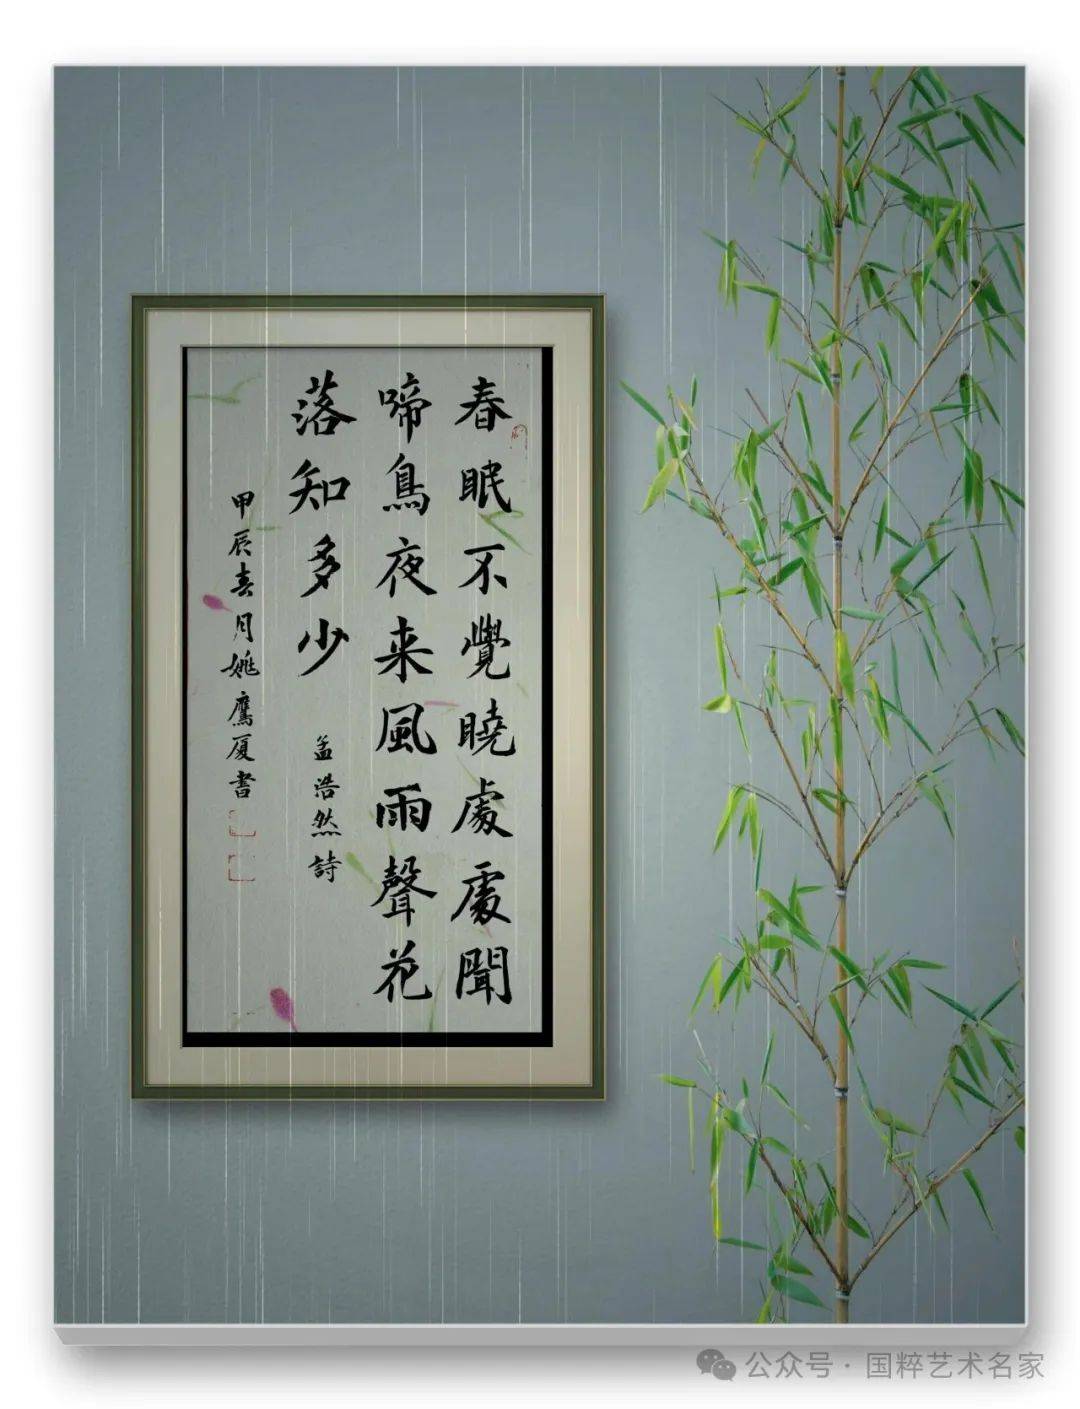 春眠不覺曉處處聞
啼鳥夜来風雨聲花
落知多少
孟浩然詩
甲辰春月姚鷹厦書
公众号·国粹艺术名家